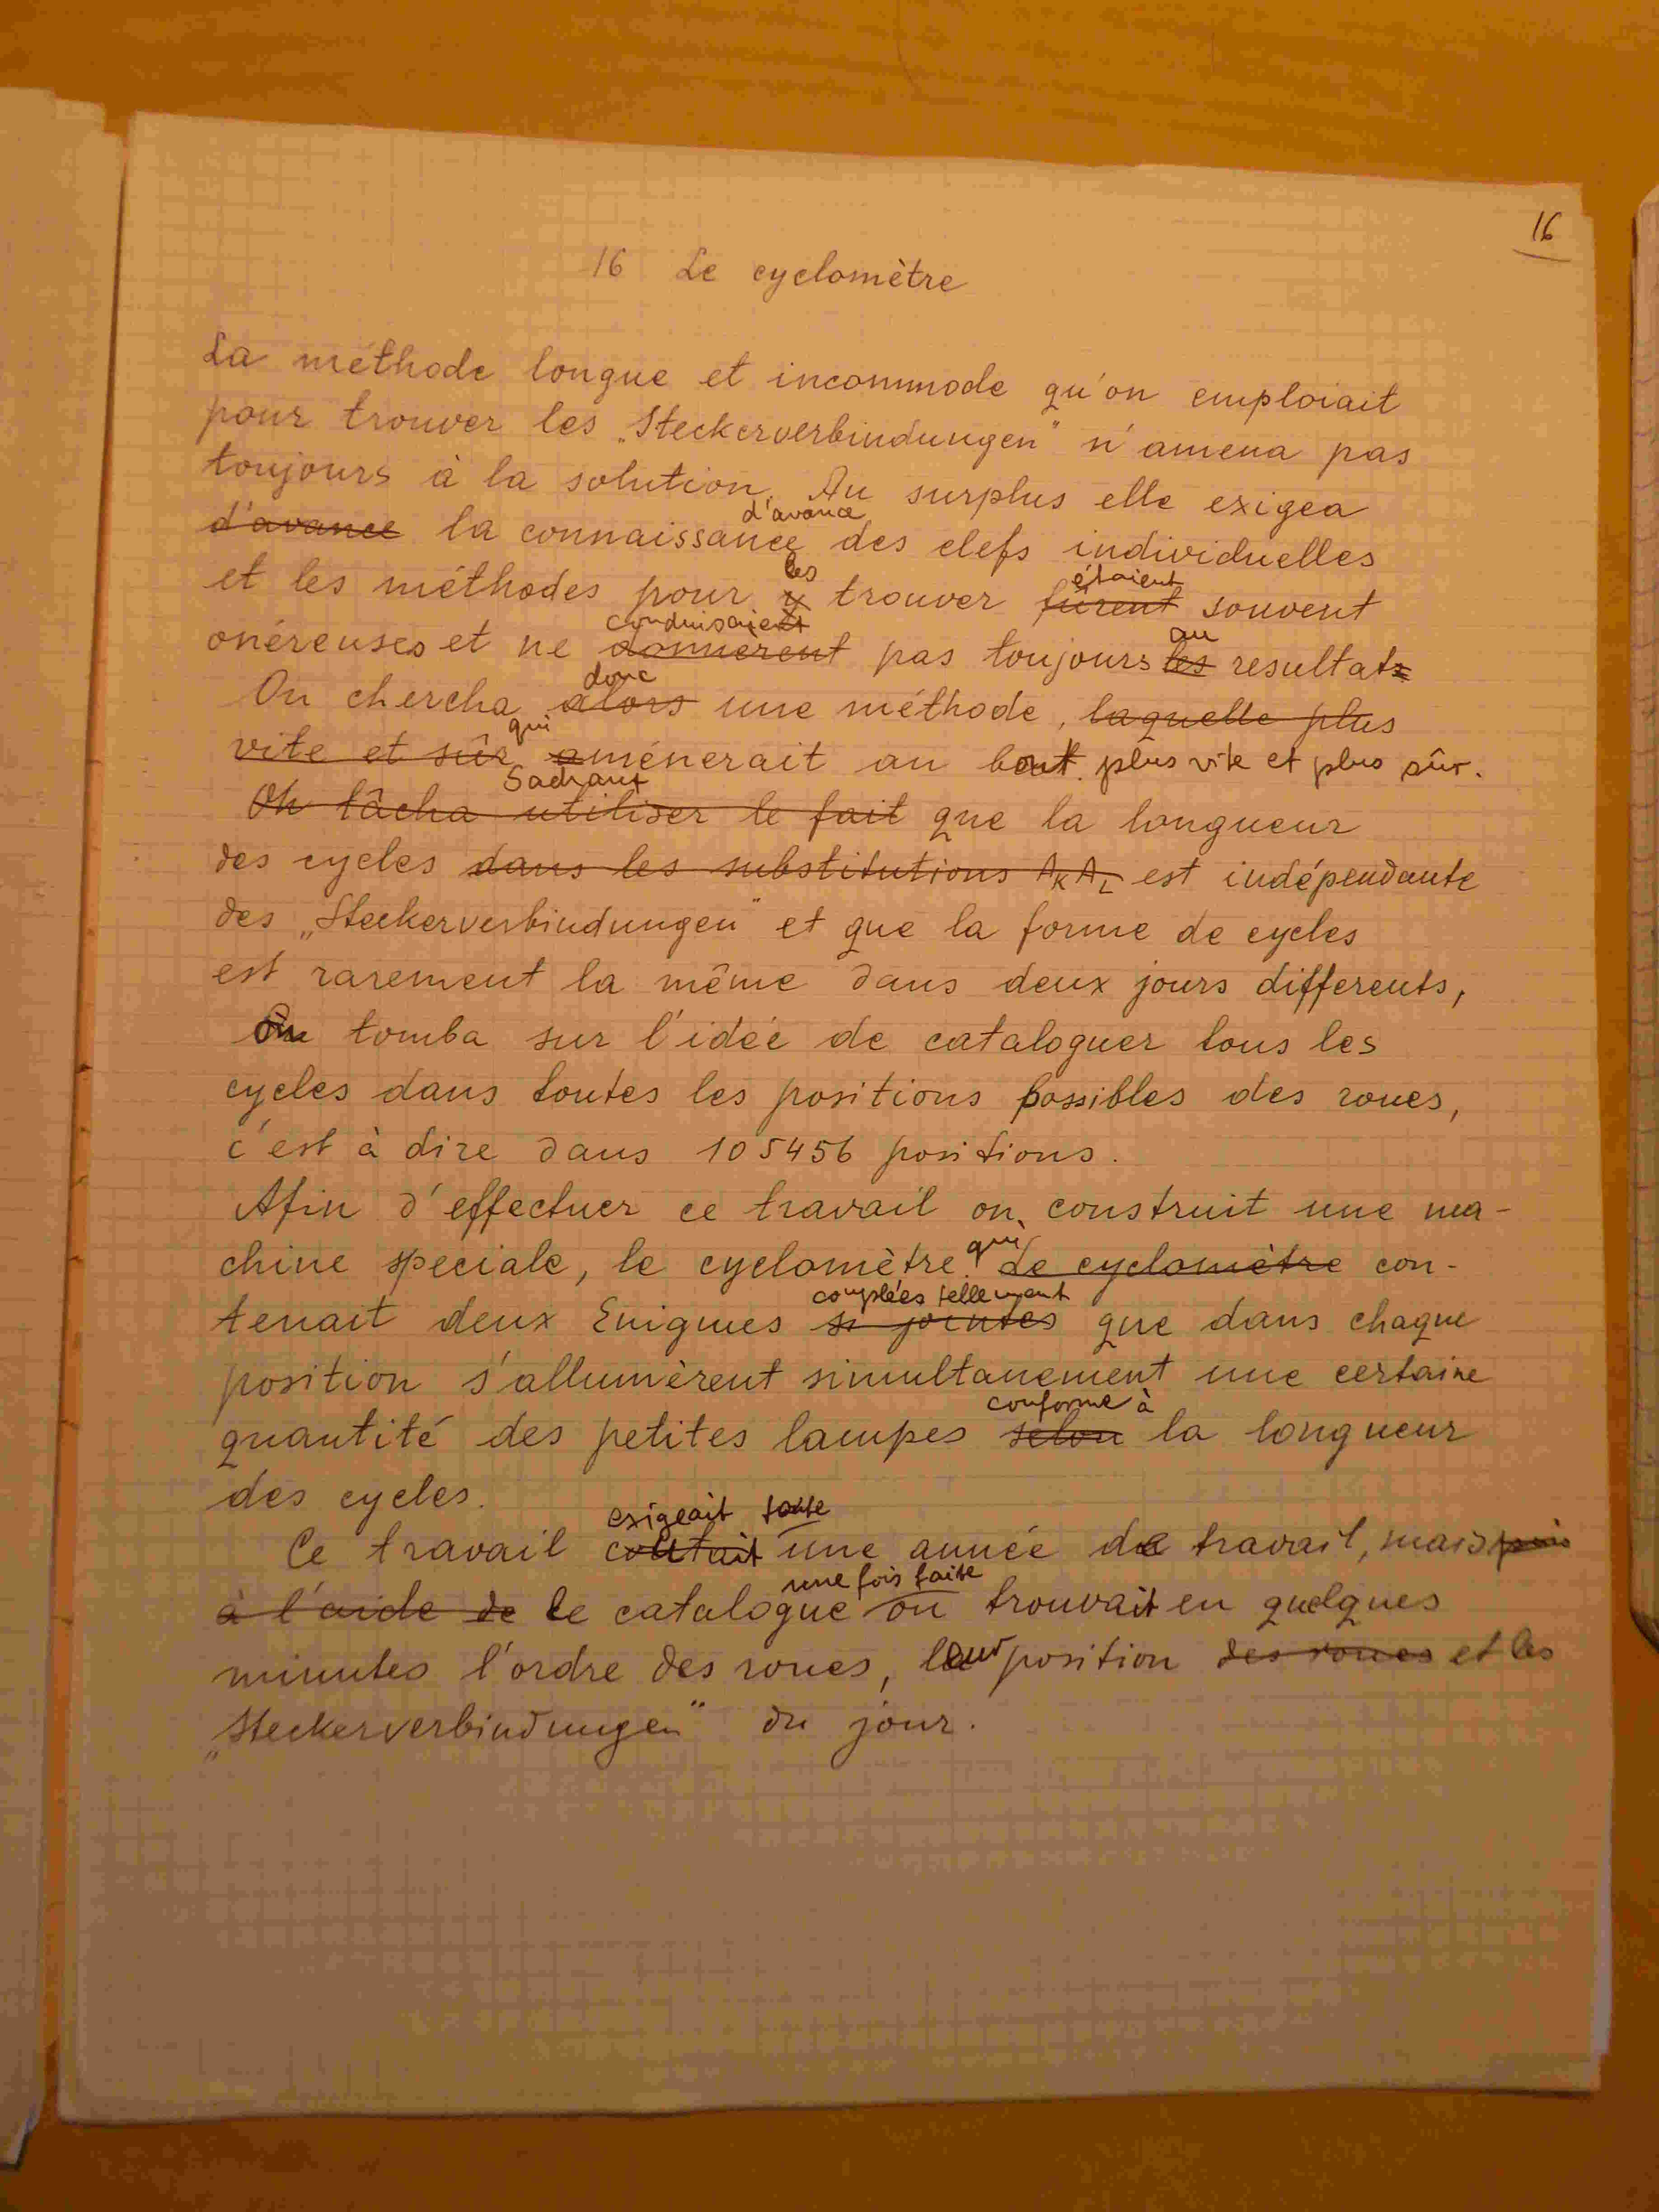 16
16 Le cyclomètre
La méthode longue et incommode qu'on emploiait
pour trouver les „Steckerverbindungen" n'amena pas
toujours à la solution. Au surplus elle exigea
d'avance
d'avance la connaissance des clefs individuelles
les étaient
et les méthodes pour y trouver fûrent souvent
conduisaient au
onéreuses et ne donnèrent pas toujours les resultats
donc
On chercha alors une méthode, laquelle plus
qui
vite et sûr amènerait au bout plus vite et plus sûr.
Sachant
On tâcha utiliser le fait que la longueur
des cycles dans les substitutions AKAL est indépendante
des „Steckerverbindungen" et que la forme de cycles
est rarement la même dans deux jours differents,
on tomba sur l'idée de cataloguer tous les
cycles dans toutes les positions possibles des roues,
c'est à dire dans 105456 positions.
Afin d'effectuer ce travail on construit une ma-
qui
chine speciale, le cyclomètre. Le cyclomètre con-
couplées tellement
tenait deux Enigmes si jointes que dans chaque
position s'allumèrent simultanement une certaine
conforme à
quantité des petites lampes selon la longueur
des cycles.
exigeait toute
Ce travail coûtait une année de travail, mais puis
une fois faite
à l'aide de le catalogue on trouvait en quelques
minutes l'ordre des roues, leur position des roues et les
„Steckerverbindungen" du jour.